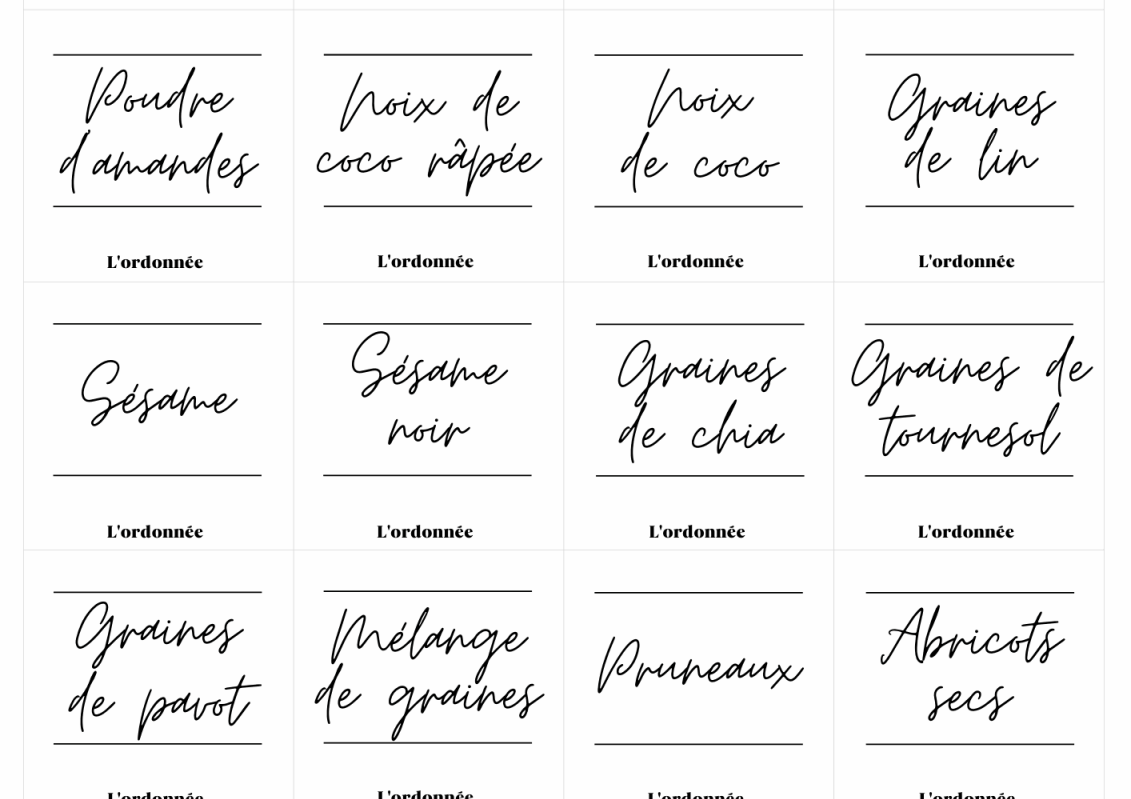 Poudre
d'amandes
L'ordonnée
Noix de
coco râpée
L'ordonnée
Noix
de coco
L'ordonnée
Graines
de lin
L'ordonnée
Sésame
L'ordonnée
Sésame
noir
L'ordonnée
Graines
de chia
L'ordonnée
Graines de
tournesol
L'ordonnée
Graines
de pavot
L'ordonnée
Mélange
de graines
L'ordonnée
Pruneaux
L'ordonnée
Abricots
secs
L'ordonnée